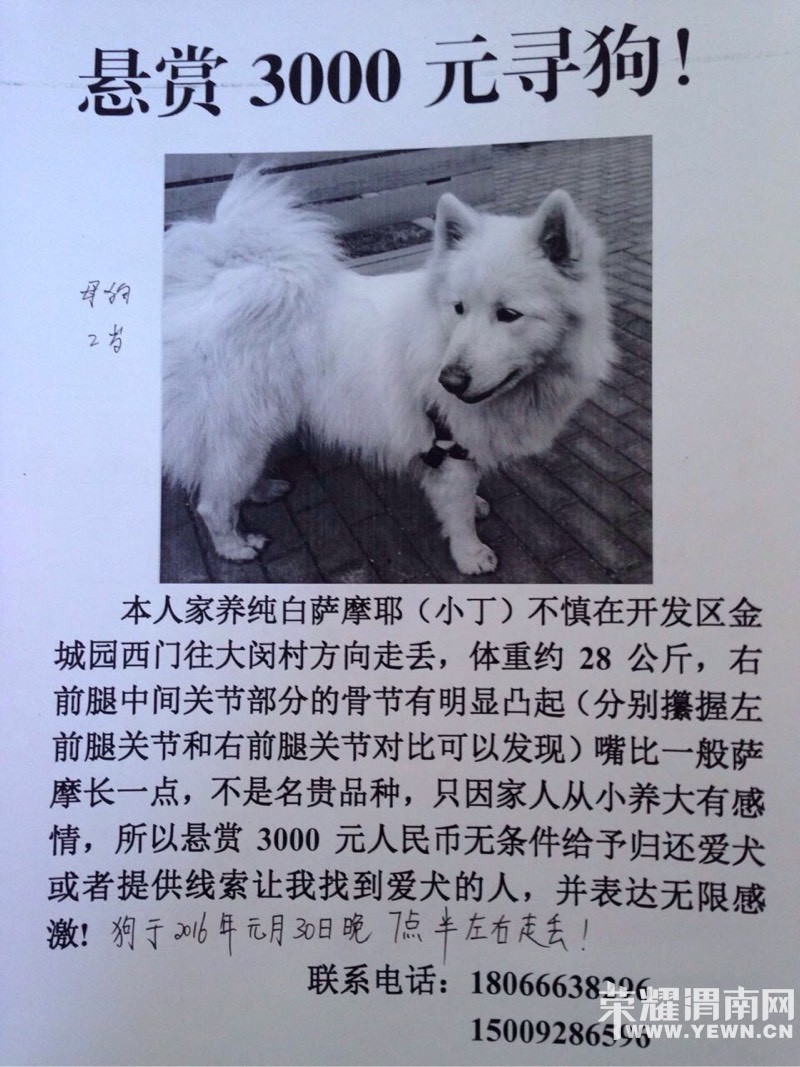 悬赏 3000 元寻狗！
母狗
2岁
本人家养纯白萨摩耶（小丁）不慎在开发区金
城园西门往大闵村方向走丢，体重约 28 公斤，右
前腿中间关节部分的骨节有明显凸起（分别攥握左
前腿关节和右前腿关节对比可以发现）嘴比一般萨
摩长一点，不是名贵品种，只因家人从小养大有感
情，所以悬赏 3000 元人民币无条件给予归还爱犬
或者提供线索让我找到爱犬的人，并表达无限感
激！狗于2016年元月30日晚 7点半左右走丢！
联系电话：18066638296
15009286596
荣耀渭南网
WWW.YEWN.CN